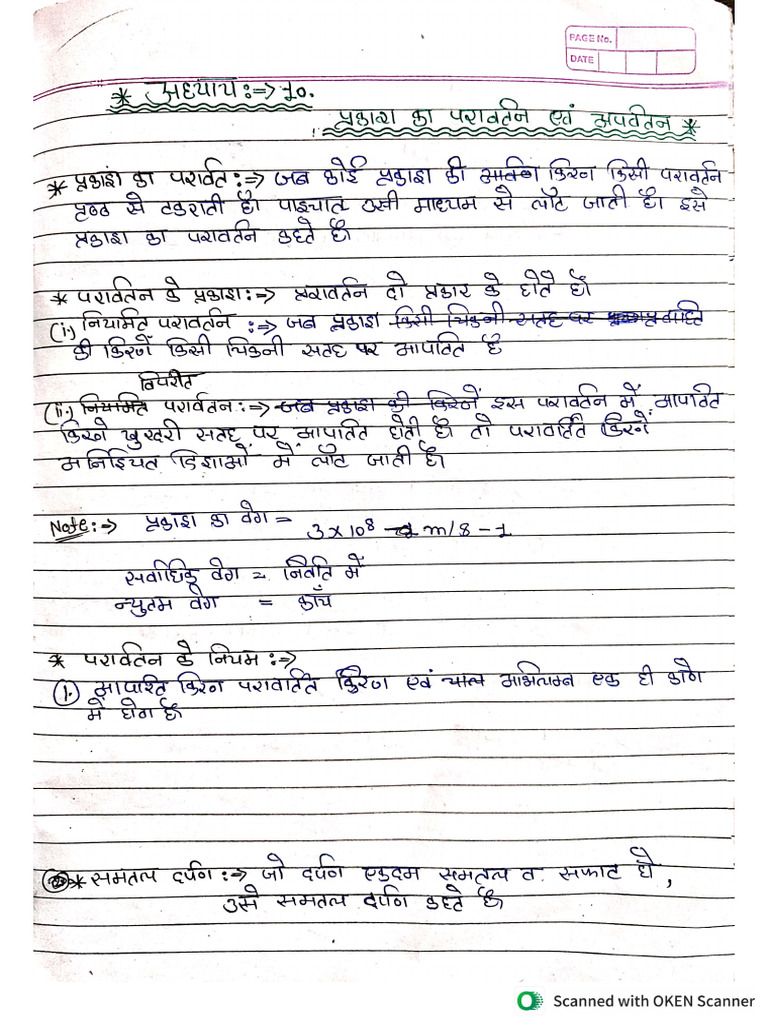 PAGE No.
DATE
* अध्याय :⇒ 10.
प्रकाश का परावर्तन एवं अपवर्तन *
* प्रकाश का परावर्त :⇒ जब कोई प्रकाश की किरण किसी परावर्तन
पृष्ठ से टकराती है। पाश्चात उसी माध्यम से लौट जाती है। इसे
प्रकाश का परावर्तन कहते है।
* परावर्तन के प्रकाश :⇒ परावर्तन दो प्रकार के होते है।
(i.) नियमित परावर्तन :⇒ जब प्रकाश किसी चिकनी सतह पर
की किरणें किसी चिकनी सतह पर आपतित है
विपरीत
(ii.) नियमित परावर्तन :⇒ जब प्रकाश की किरनें इस परावर्तन में आपतित
किरने खुरदरी सतह पर आपतित होती है। तो परावर्तित किरने
अनिश्चित दिशाओं में लौट जाती है।
Note :⇒ प्रकाश का वेग = 3 × 10 8 m/8 - 1
सर्वाधिक वेग = निर्वात में
न्युतम वेग = काँच
* परावर्तन के नियम :⇒
1. आपतित किरन परावर्तित किरण एवं अभिलम्ब एक ही
में होग है।
* समतल दर्पण :⇒ जो दर्पण एकदम समतल व सफाट हो,
उसे समतल दर्पण कहते है।
Scanned with OKEN Scanner